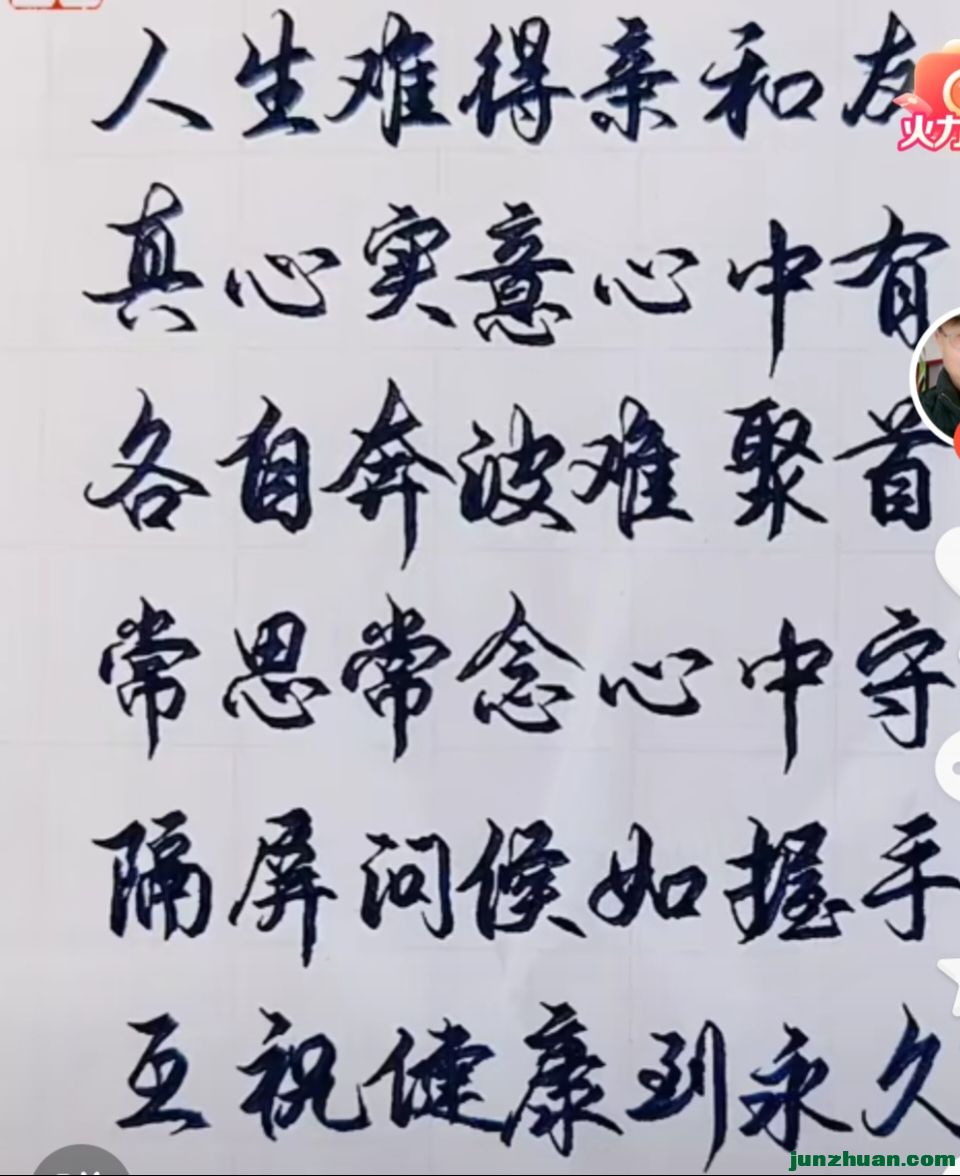 人生难得亲和友
火力
真心实意心中有
各自奔波难聚首
常思常念心中守
隔屏问候如握手
互祝健康到永久
junzhuan.com